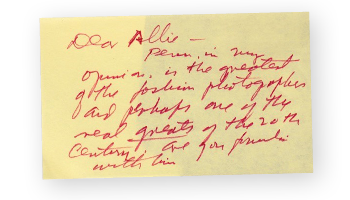 Dear Allie —
Penn, in my
opinion, is the greatest
of the fashion photographers
and perhaps one of the
real greats of the 20th
Century. Are you friends
with him